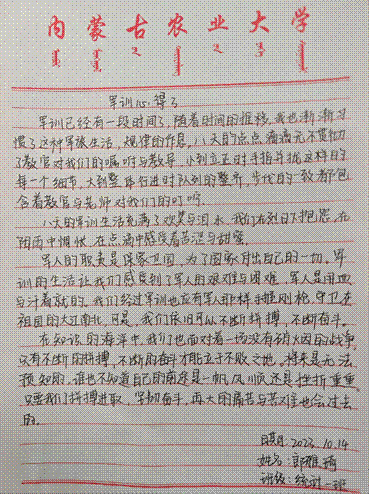 内蒙古农业大学
军训心得3
军训已经有一段时间了，随着时间的推移，我也渐渐习
惯了这种军旅生活，规律的作息，八天的点点滴滴无不贯彻
了教官对我们的嘱咐与教导，小到立正时手指并拢这样的
每一个细节，大到整体行进时队列的整齐，步伐的一致都包
含着教官与老师对我们的叮咛。
八天的军训生活充满了欢笑与泪水，我们在烈日下抱怨，在
阴雨中惆怅，在点滴中感受着苦涩与甜蜜。
军人的职责是保家卫国，为了国家付出自己的一切，军
训的生活让我们感受到了军人的艰难与困难，军人是用血
与汗着就的，我们经过军训也应有军人那样撑枪，守卫在
祖国的大江南北，但是，我们依旧可以不断拼搏，不断奋斗。
在知识的海洋中，我们也面对着一场没有硝烟的战争，
只有不断的拼搏，不断的奋斗才能立于不败之地，将来是无法
预知的，谁也不知道自己的前途是一帆风顺还是挫折重重，
只要我们拼搏进取，努力奋斗，再大的痛苦与苦难也会过去
的。
日期：2023.10.14
姓名：郭雅琦
班级：统计一班